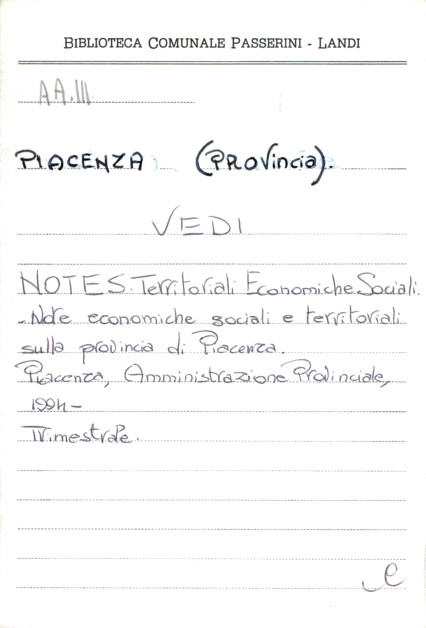 BIBLIOTECA COMUNALE PASSERINI - LANDI
AA.III
PIACENZA (PROVincia).
VEDI
NOTES. Territoriali Economiche Sociali.
- Note economiche sociali e territoriali
sulla provincia di Piacenza.
Piacenza, Amministrazione Provinciale,
1994 -
Trimestrale.